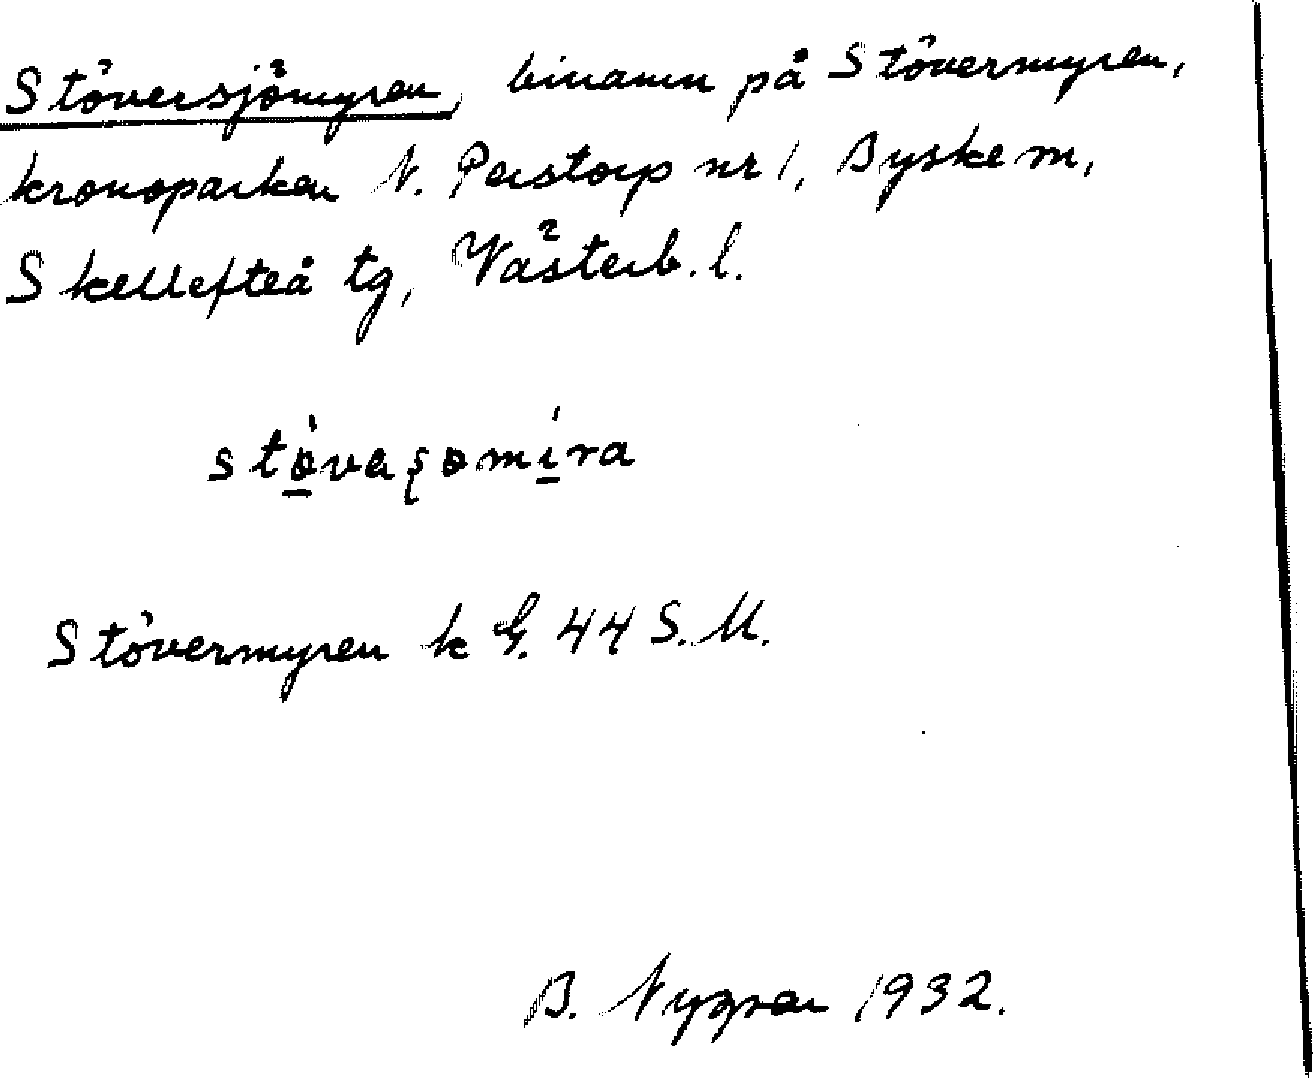 Stöversjömyren, binamn på Stövermyren,
kronoparken N. Perstorp nr 1, Byske sn,
Skellefteå tg, Västerb. l.
Stövermyren k G. 44 S. U.
B. Nygren 1932.